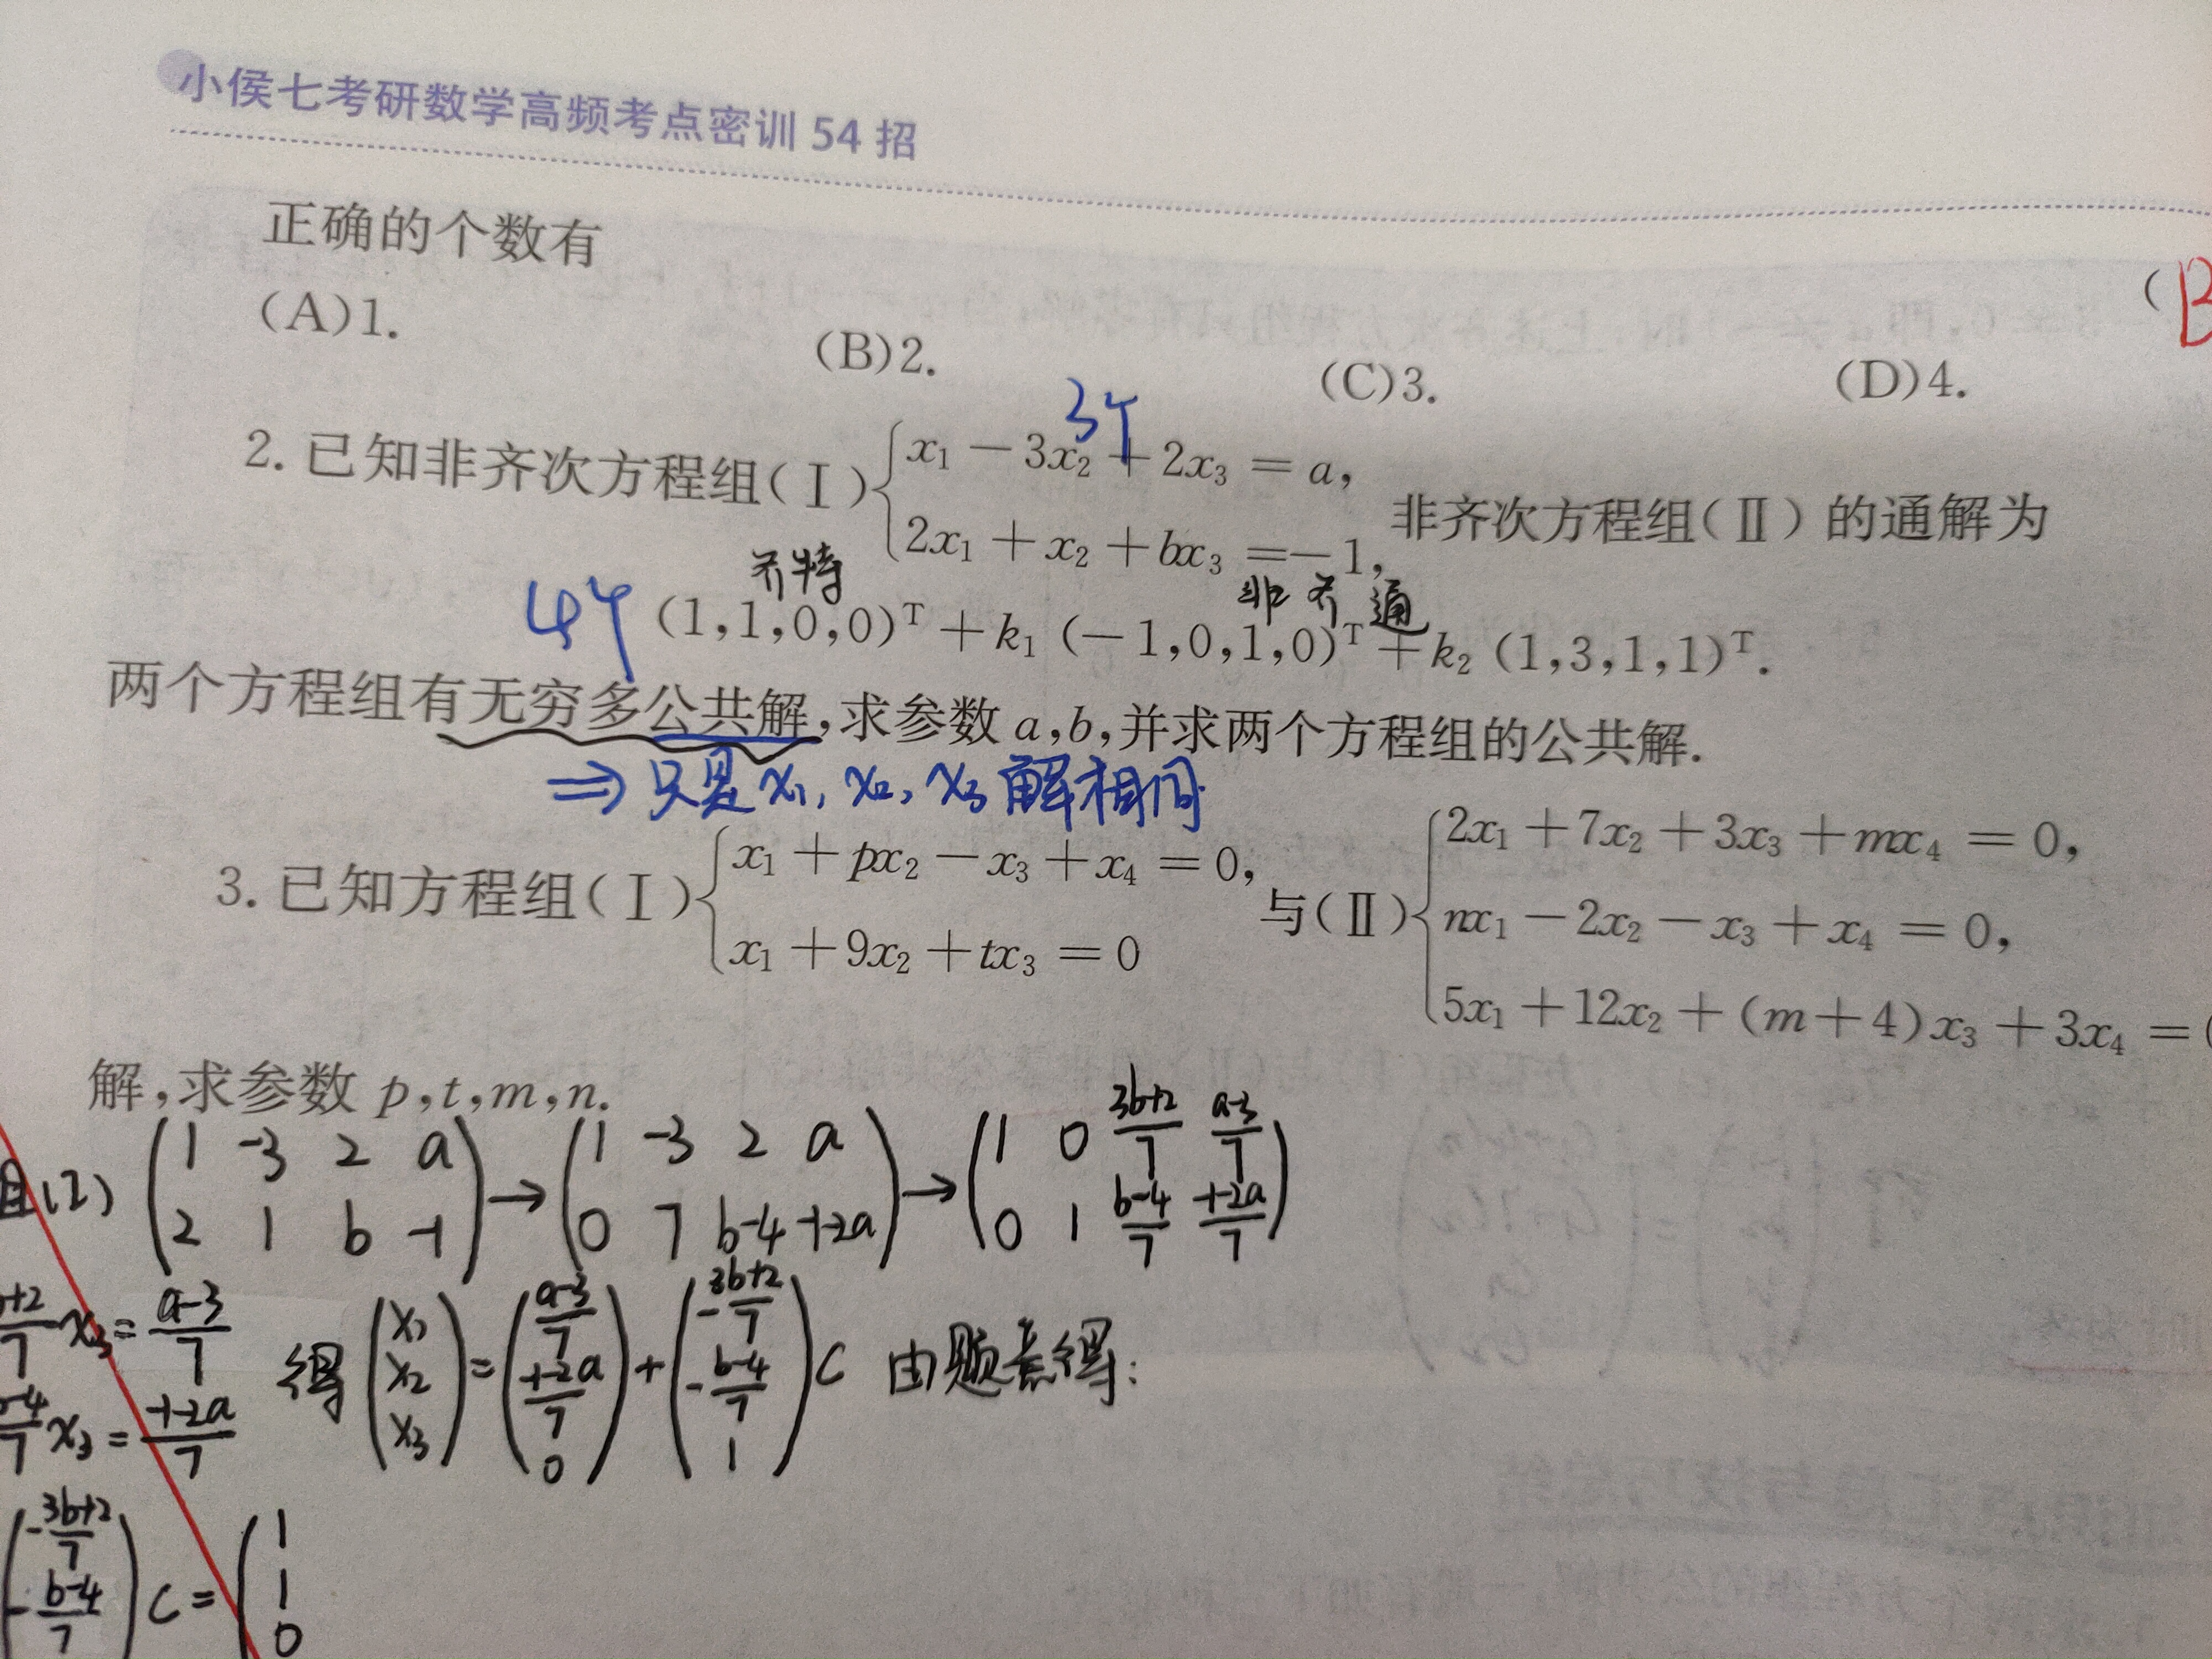 小侯七考研数学高频考点密训 54 招
正确的个数有
(B
(A)1. (B)2. (C)3. (D)4.
3个
2. 已知非齐次方程组(Ⅰ){x₁ − 3x₂ + 2x₃ = a, 2x₁ + x₂ + bx₃ = −1, 非齐次方程组(Ⅱ)的通解为
齐特 非齐通
4个 (1,1,0,0)ᵀ + k₁ (−1,0,1,0)ᵀ + k₂ (1,3,1,1)ᵀ.
两个方程组有无穷多公共解,求参数 a,b,并求两个方程组的公共解.
⇒ 只是 x₁, x₂, x₃ 解相同
3. 已知方程组(Ⅰ){x₁ + px₂ − x₃ + x₄ = 0, x₁ + 9x₂ + tx₃ = 0 与(Ⅱ){2x₁ + 7x₂ + 3x₃ + mx₄ = 0, nx₁ − 2x₂ − x₃ + x₄ = 0, 5x₁ + 12x₂ + (m+4)x₃ + 3x₄ =
解,求参数 p,t,m,n.
(1 -3 2 a) → (1 -3 2 a) → (1 0 3b+2/7 a-3/7)
(2 1 b -1) (0 7 b-4 -1-2a) (0 1 b-4/7 -1-2a/7)
+2/7 x₃ = a-3/7
-4/7 x₃ = -1-2a/7
得 (x₁ x₂ x₃) = (a-3/7 -1-2a/7 0) + (-3b+2/7 -b-4/7 1) c 由题意得:
(-3b+2/7 -b-4/7) c = (1 1 0